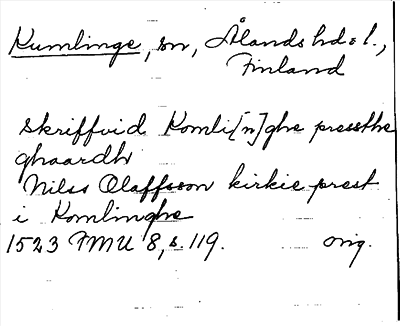 Kumlinge, sn, Ålands hd o l.,
Finland
skriffvid Komli[n]ghe pressthe
ghaardh
Nilss Olaffsson kirkie prest
i Komlinghe
1523 FMU 8, s. 119. orig.